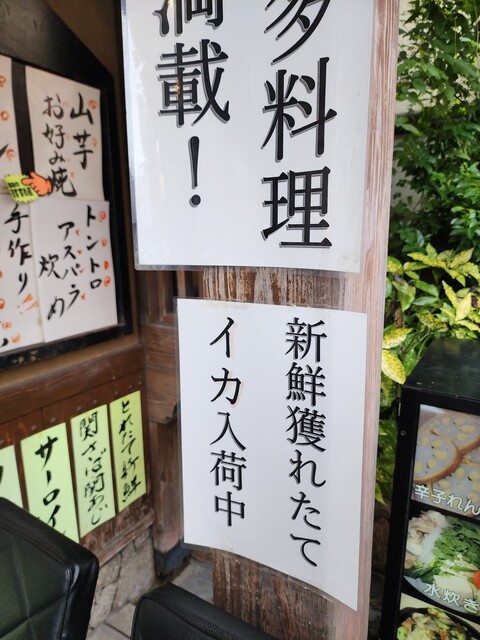 多料理
満載！
新鮮獲れたて
イカ入荷中
山芋
お好み焼
トントロ
アスパラ
炒め
手作り
とれたて新鮮
関さば関あじ
サーロイ
辛子れん
水炊き